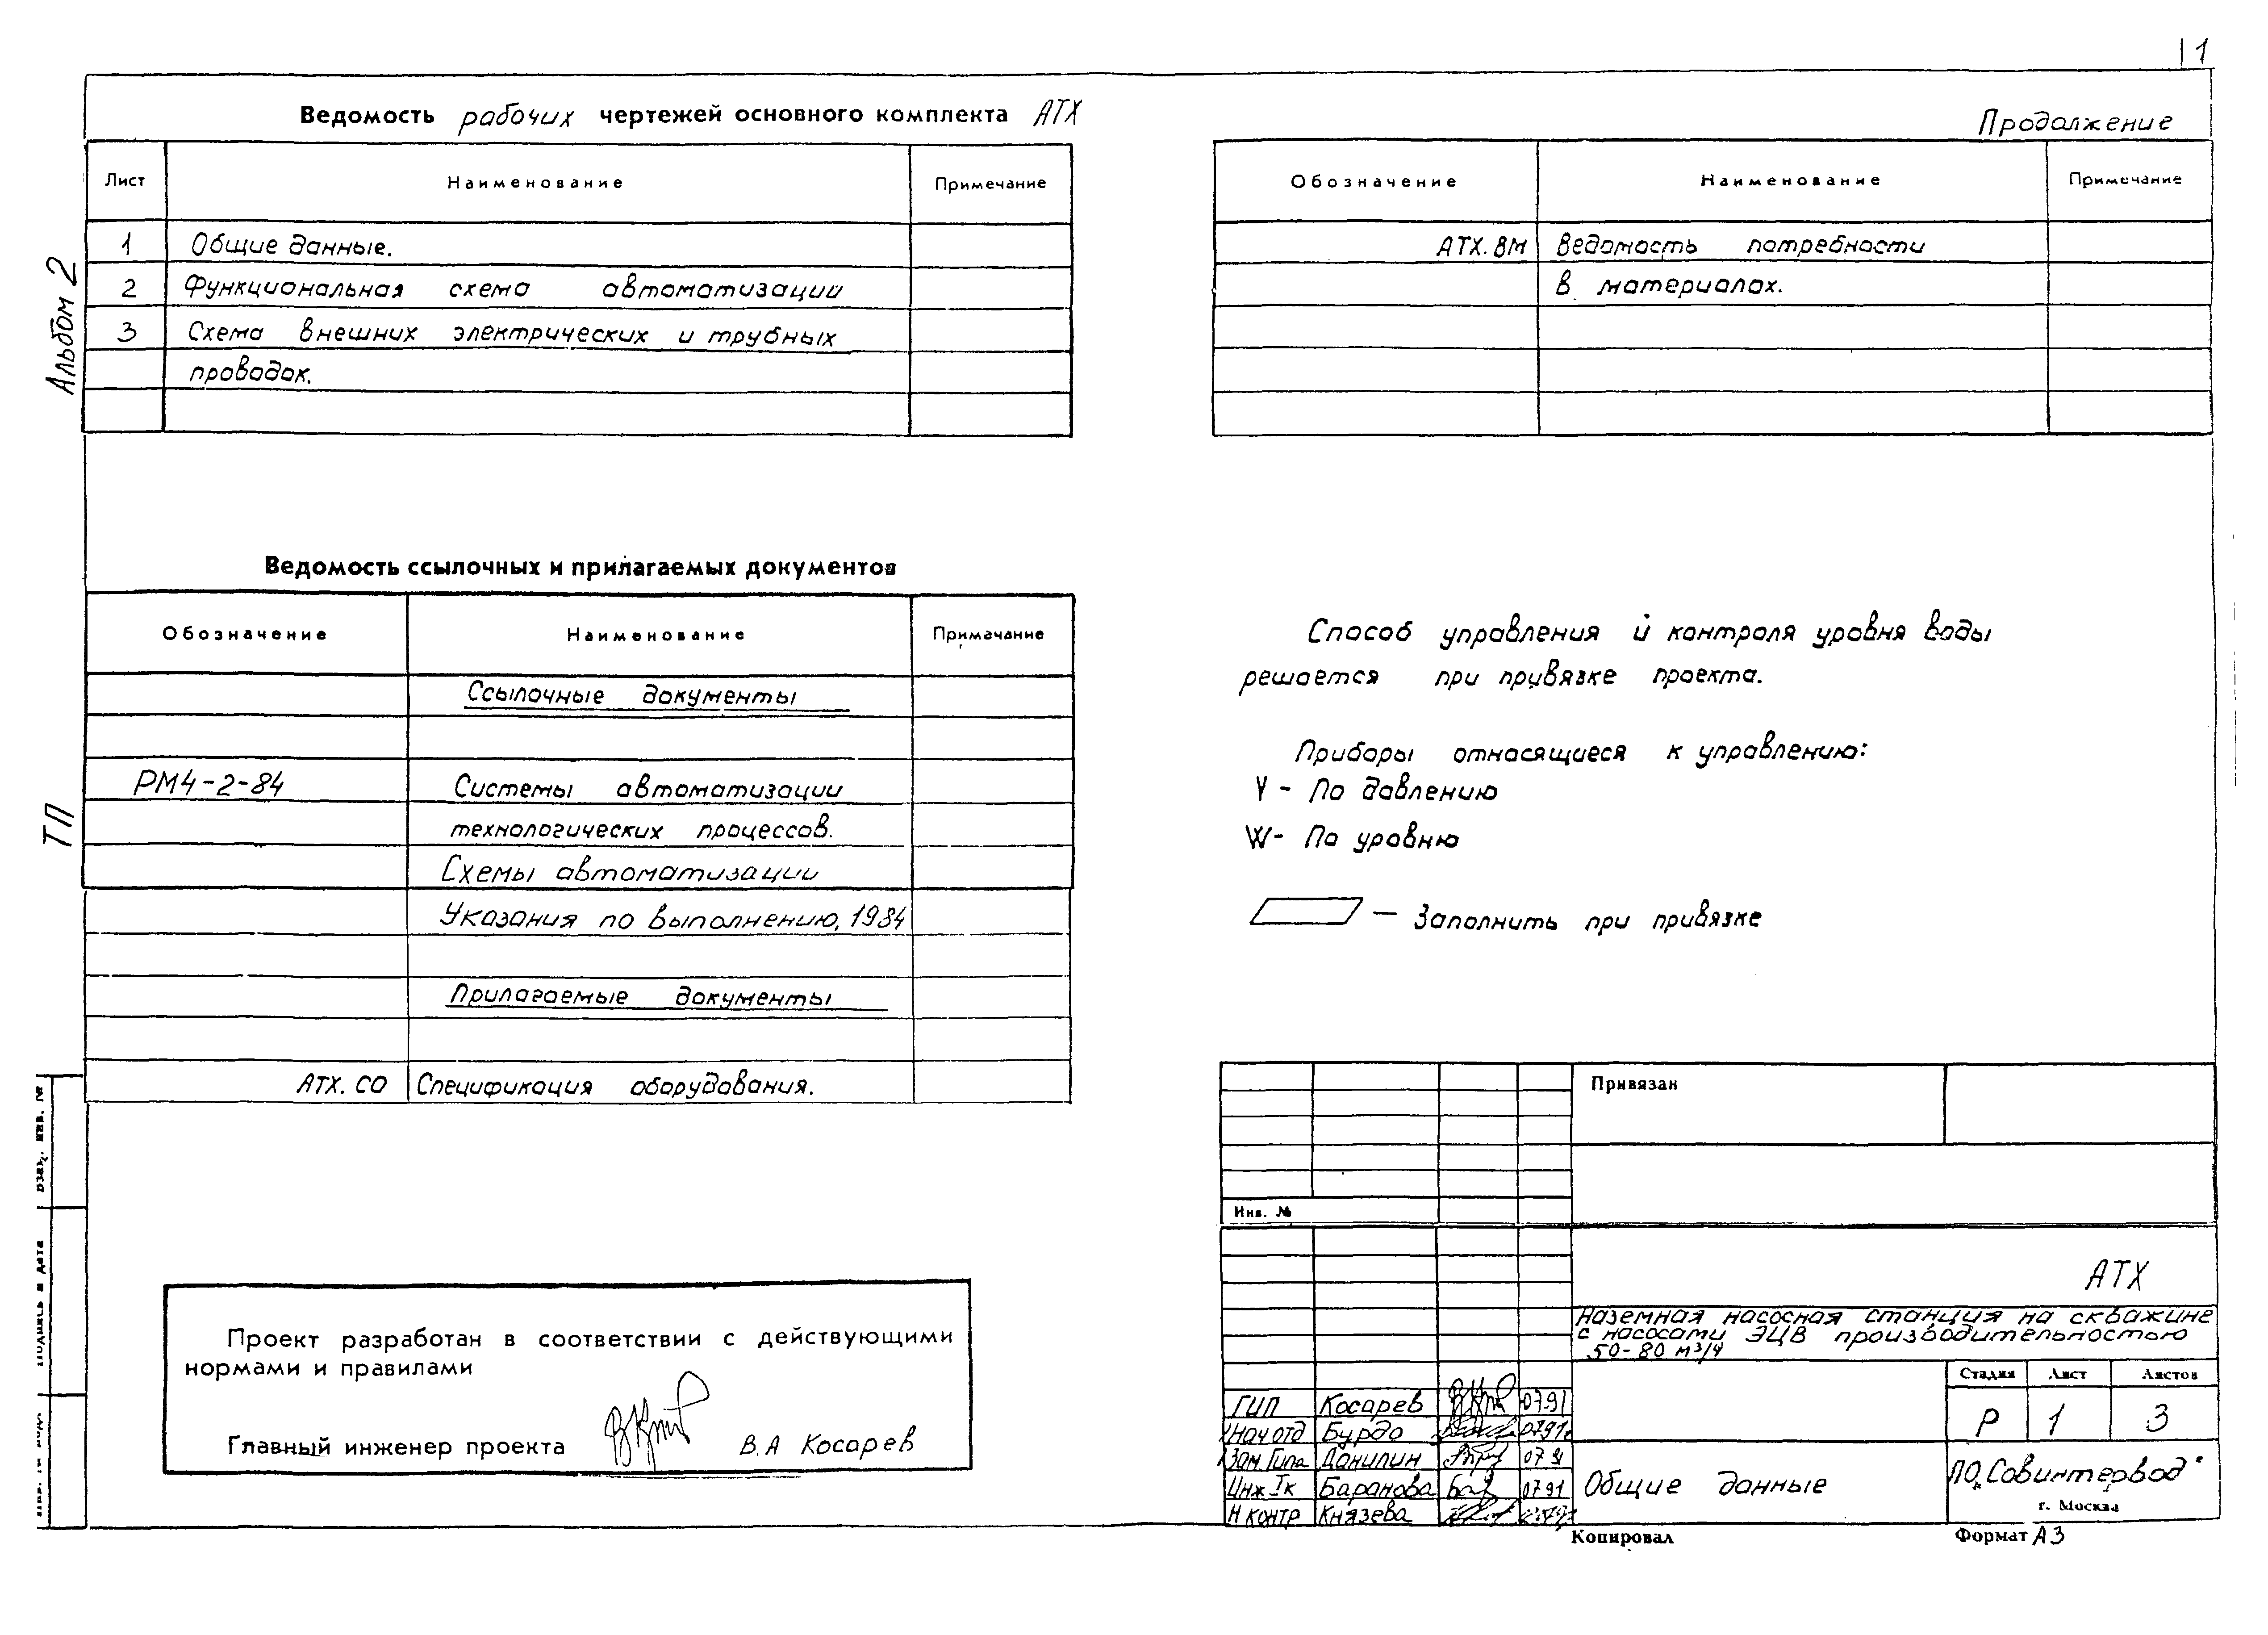 1
Ведомость рабочих чертежей основного комплекта АТХ
Лист Наименование Примечание
1 Общие данные.
2 Функциональная схема автоматизации
3 Схема внешних электрических и трубных
проводок.
Альбом 2
Продолжение
Обозначение Наименование Примечание
АТХ. ВМ Ведомость потребности
в материалах.
Ведомость ссылочных и прилагаемых документов
Обозначение Наименование Примечание
Ссылочные документы
РМ4-2-84 Системы автоматизации
технологических процессов.
Схемы автоматизации
Указания по выполнению, 1984
Прилагаемые документы
АТХ. СО Спецификация оборудования.
ТП
Способ управления и контроля уровня воды
решается при привязке проекта.
Приборы относящиеся к управлению:
V - По давлению
W- По уровню
— Заполнить при привязке
Взам. инв. №
Подпись и дата
Проект разработан в соответствии с действующими
нормами и правилами
Главный инженер проекта В.А Косарев
Привязан
Инв. №
АТХ
Наземная насосная станция на скважине
с насосами ЭЦВ производительностью
50-80 м³/ч
Стадия Лист Листов
Р 1 3
ГИП Косарев 07.91
Нач отд Бурдо 07.91
Зам. Гипа Данилин 07 91
Инж Iк Баранова 07 91
Н контр Князева
Общие данные
ПО „Совинтервод"
г. Москва
Копировал
Формат А3